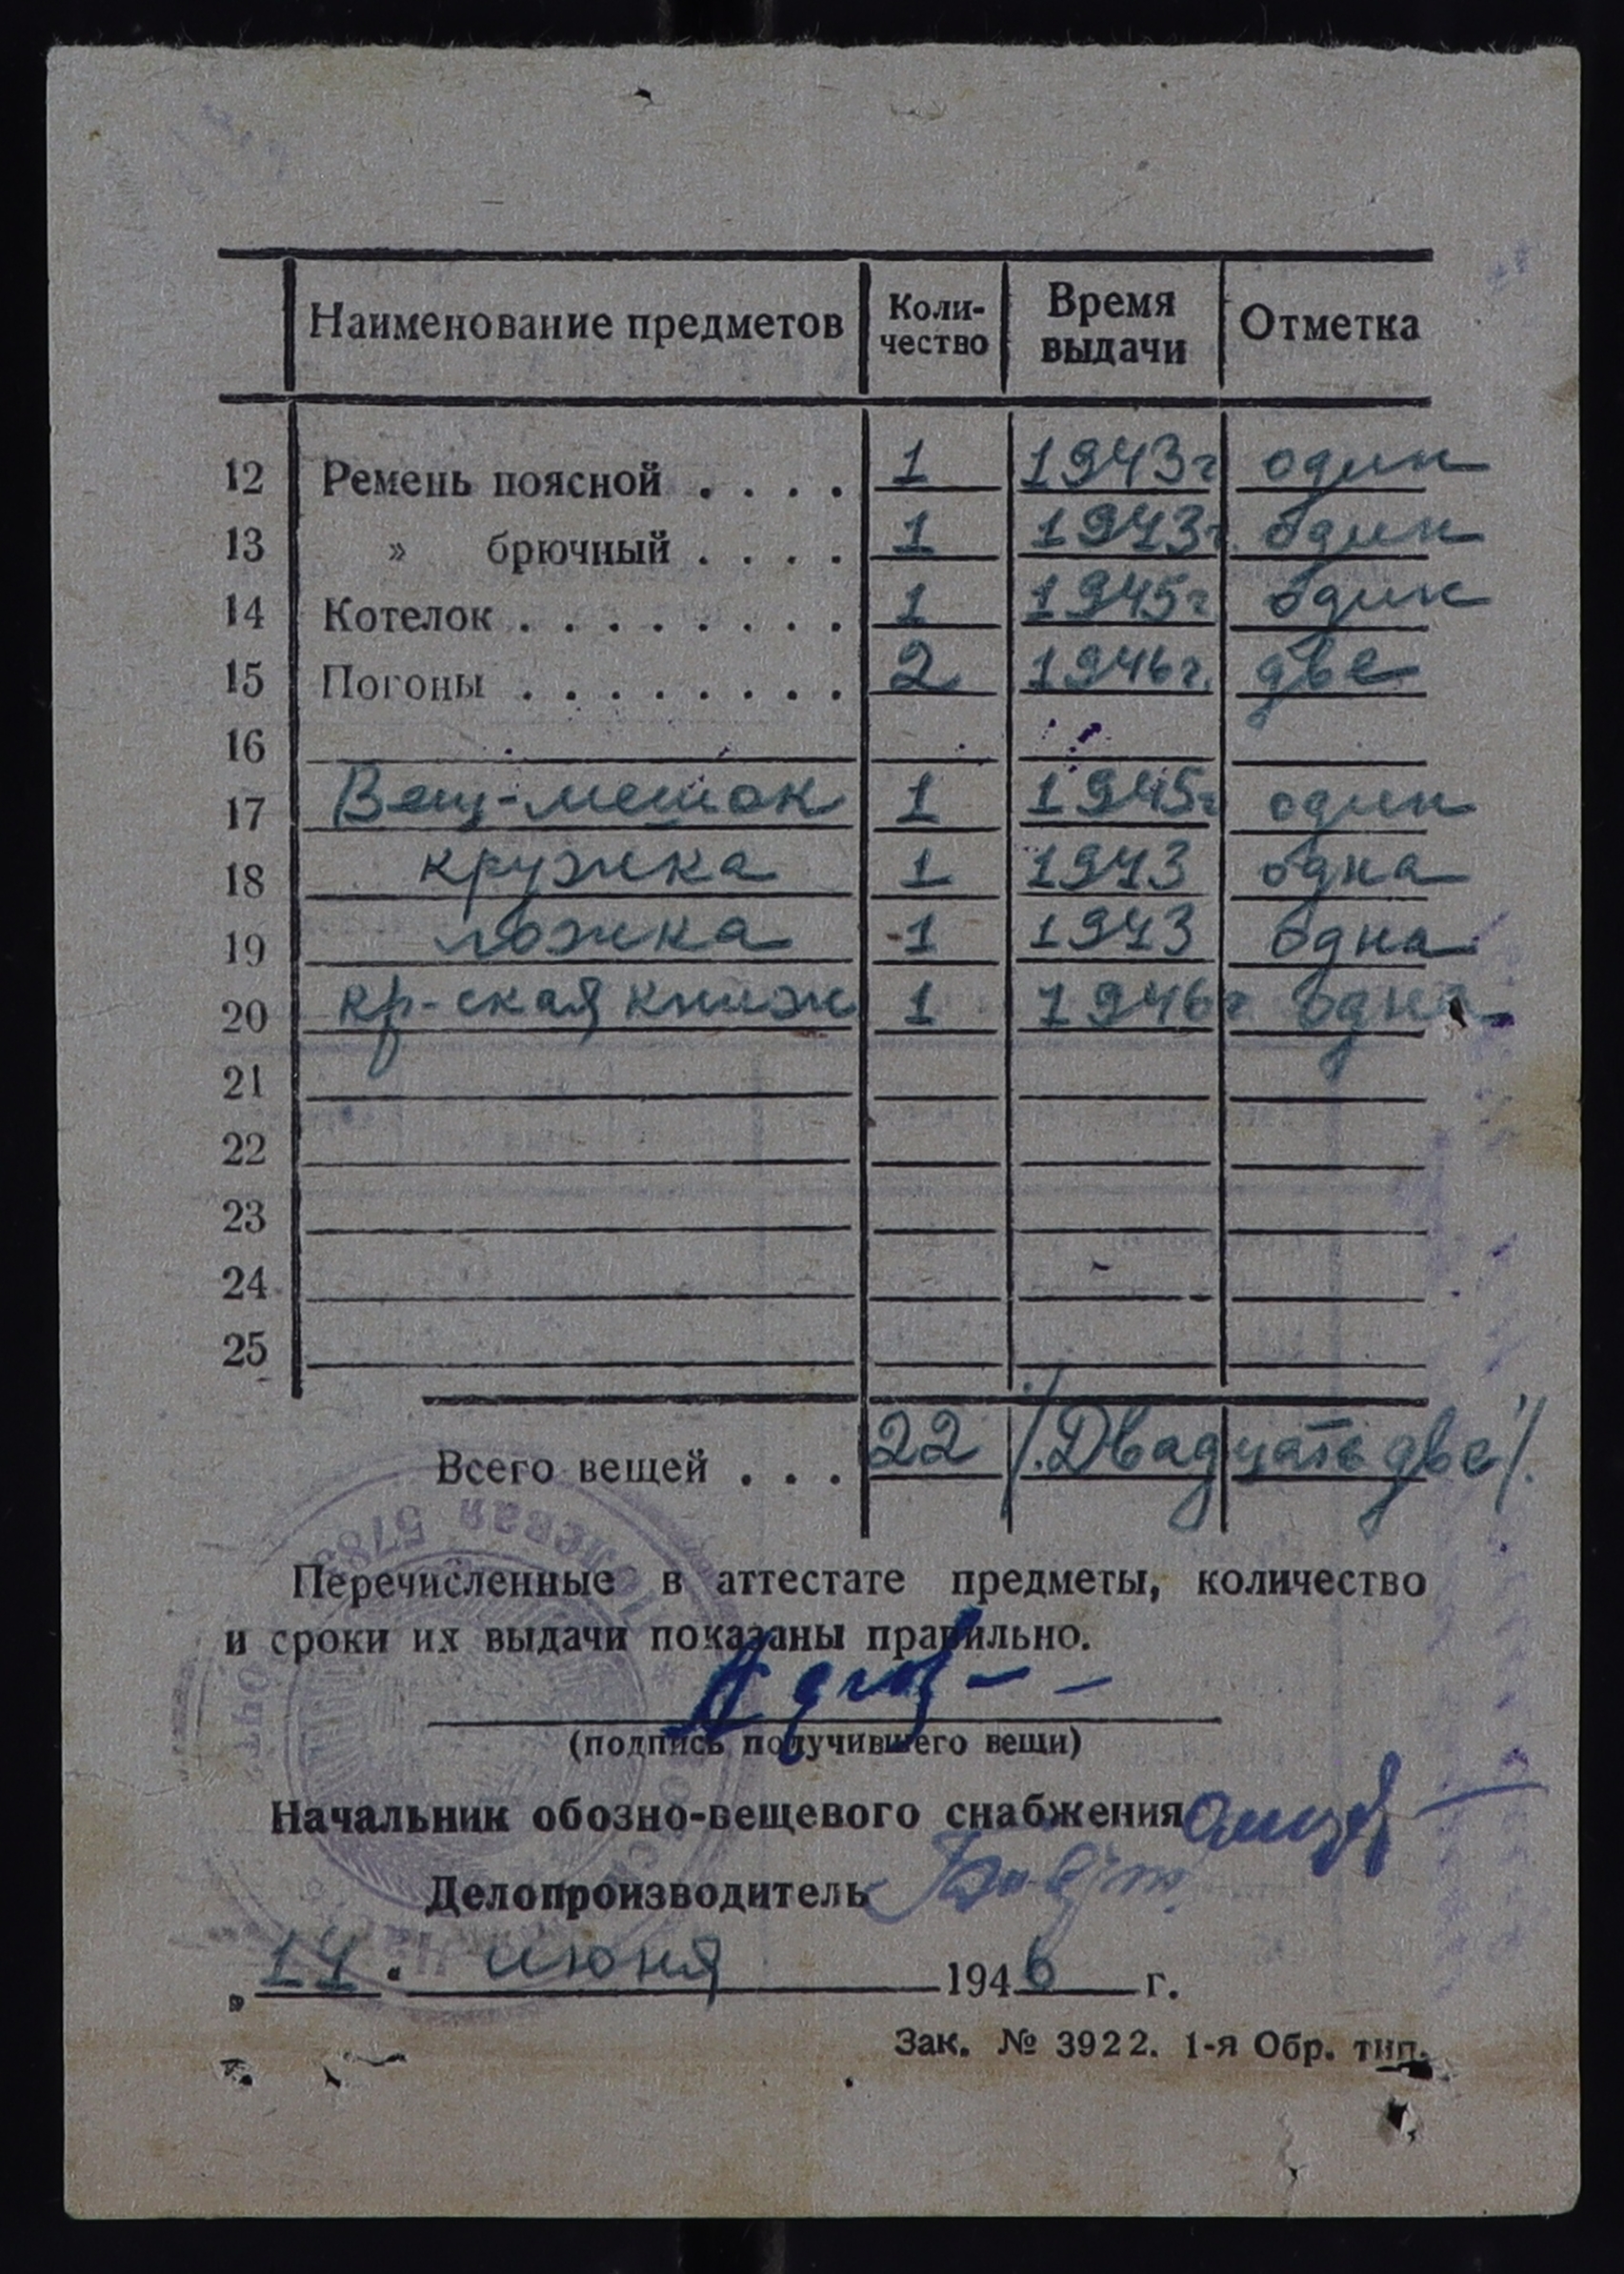 Наименование предметов Коли-чество Время выдачи Отметка
12 Ремень поясной . . . . 1 1943г один
13 » брючный . . . . 1 1943г. один
14 Котелок . . . . . . . . 1 1945г один
15 Погоны . . . . . . . . 2 1946г. две
16
17 Вещ-мешок 1 1945г один
18 кружка 1 1943 одна
19 ложка 1 1943 одна
20 кр-ская книж 1 1946г одна
21
22
23
24
25
Всего вещей . . . 22 /.Двадцать две/.
Перечисленные в аттестате предметы, количество
и сроки их выдачи показаны правильно.
(подпись получившего вещи)
Начальник обозно-вещевого снабжения
Делопроизводитель
„ 14 . июня 1946 г.
Зак. № 3922. 1-я Обр. тип.